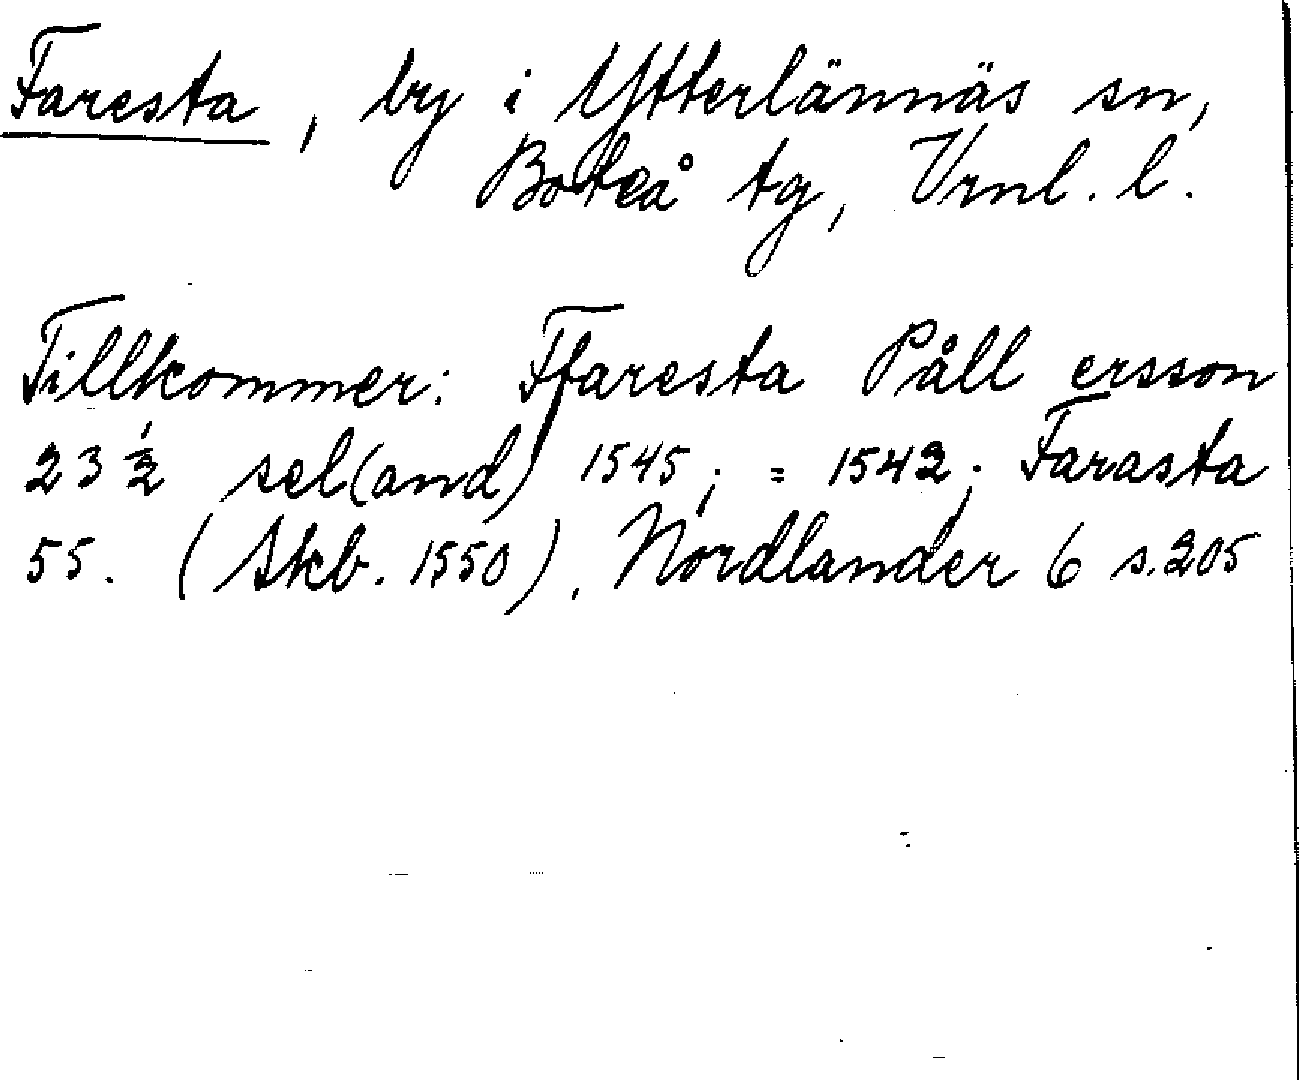 Faresta, by i Ytterlännäs sn,
Boteå tg, Vrnl. l.
Tillkommer: Ffaresta Påll ersson
23 ½ sel(and) 1545; = 1542; Farasta
55. (Skb. 1550), Nordlander 6 s. 205